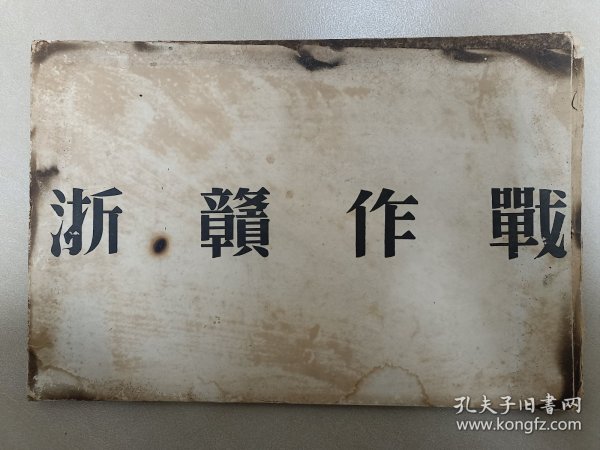 浙贛作戰
孔夫子旧书网
www.kongfz.com